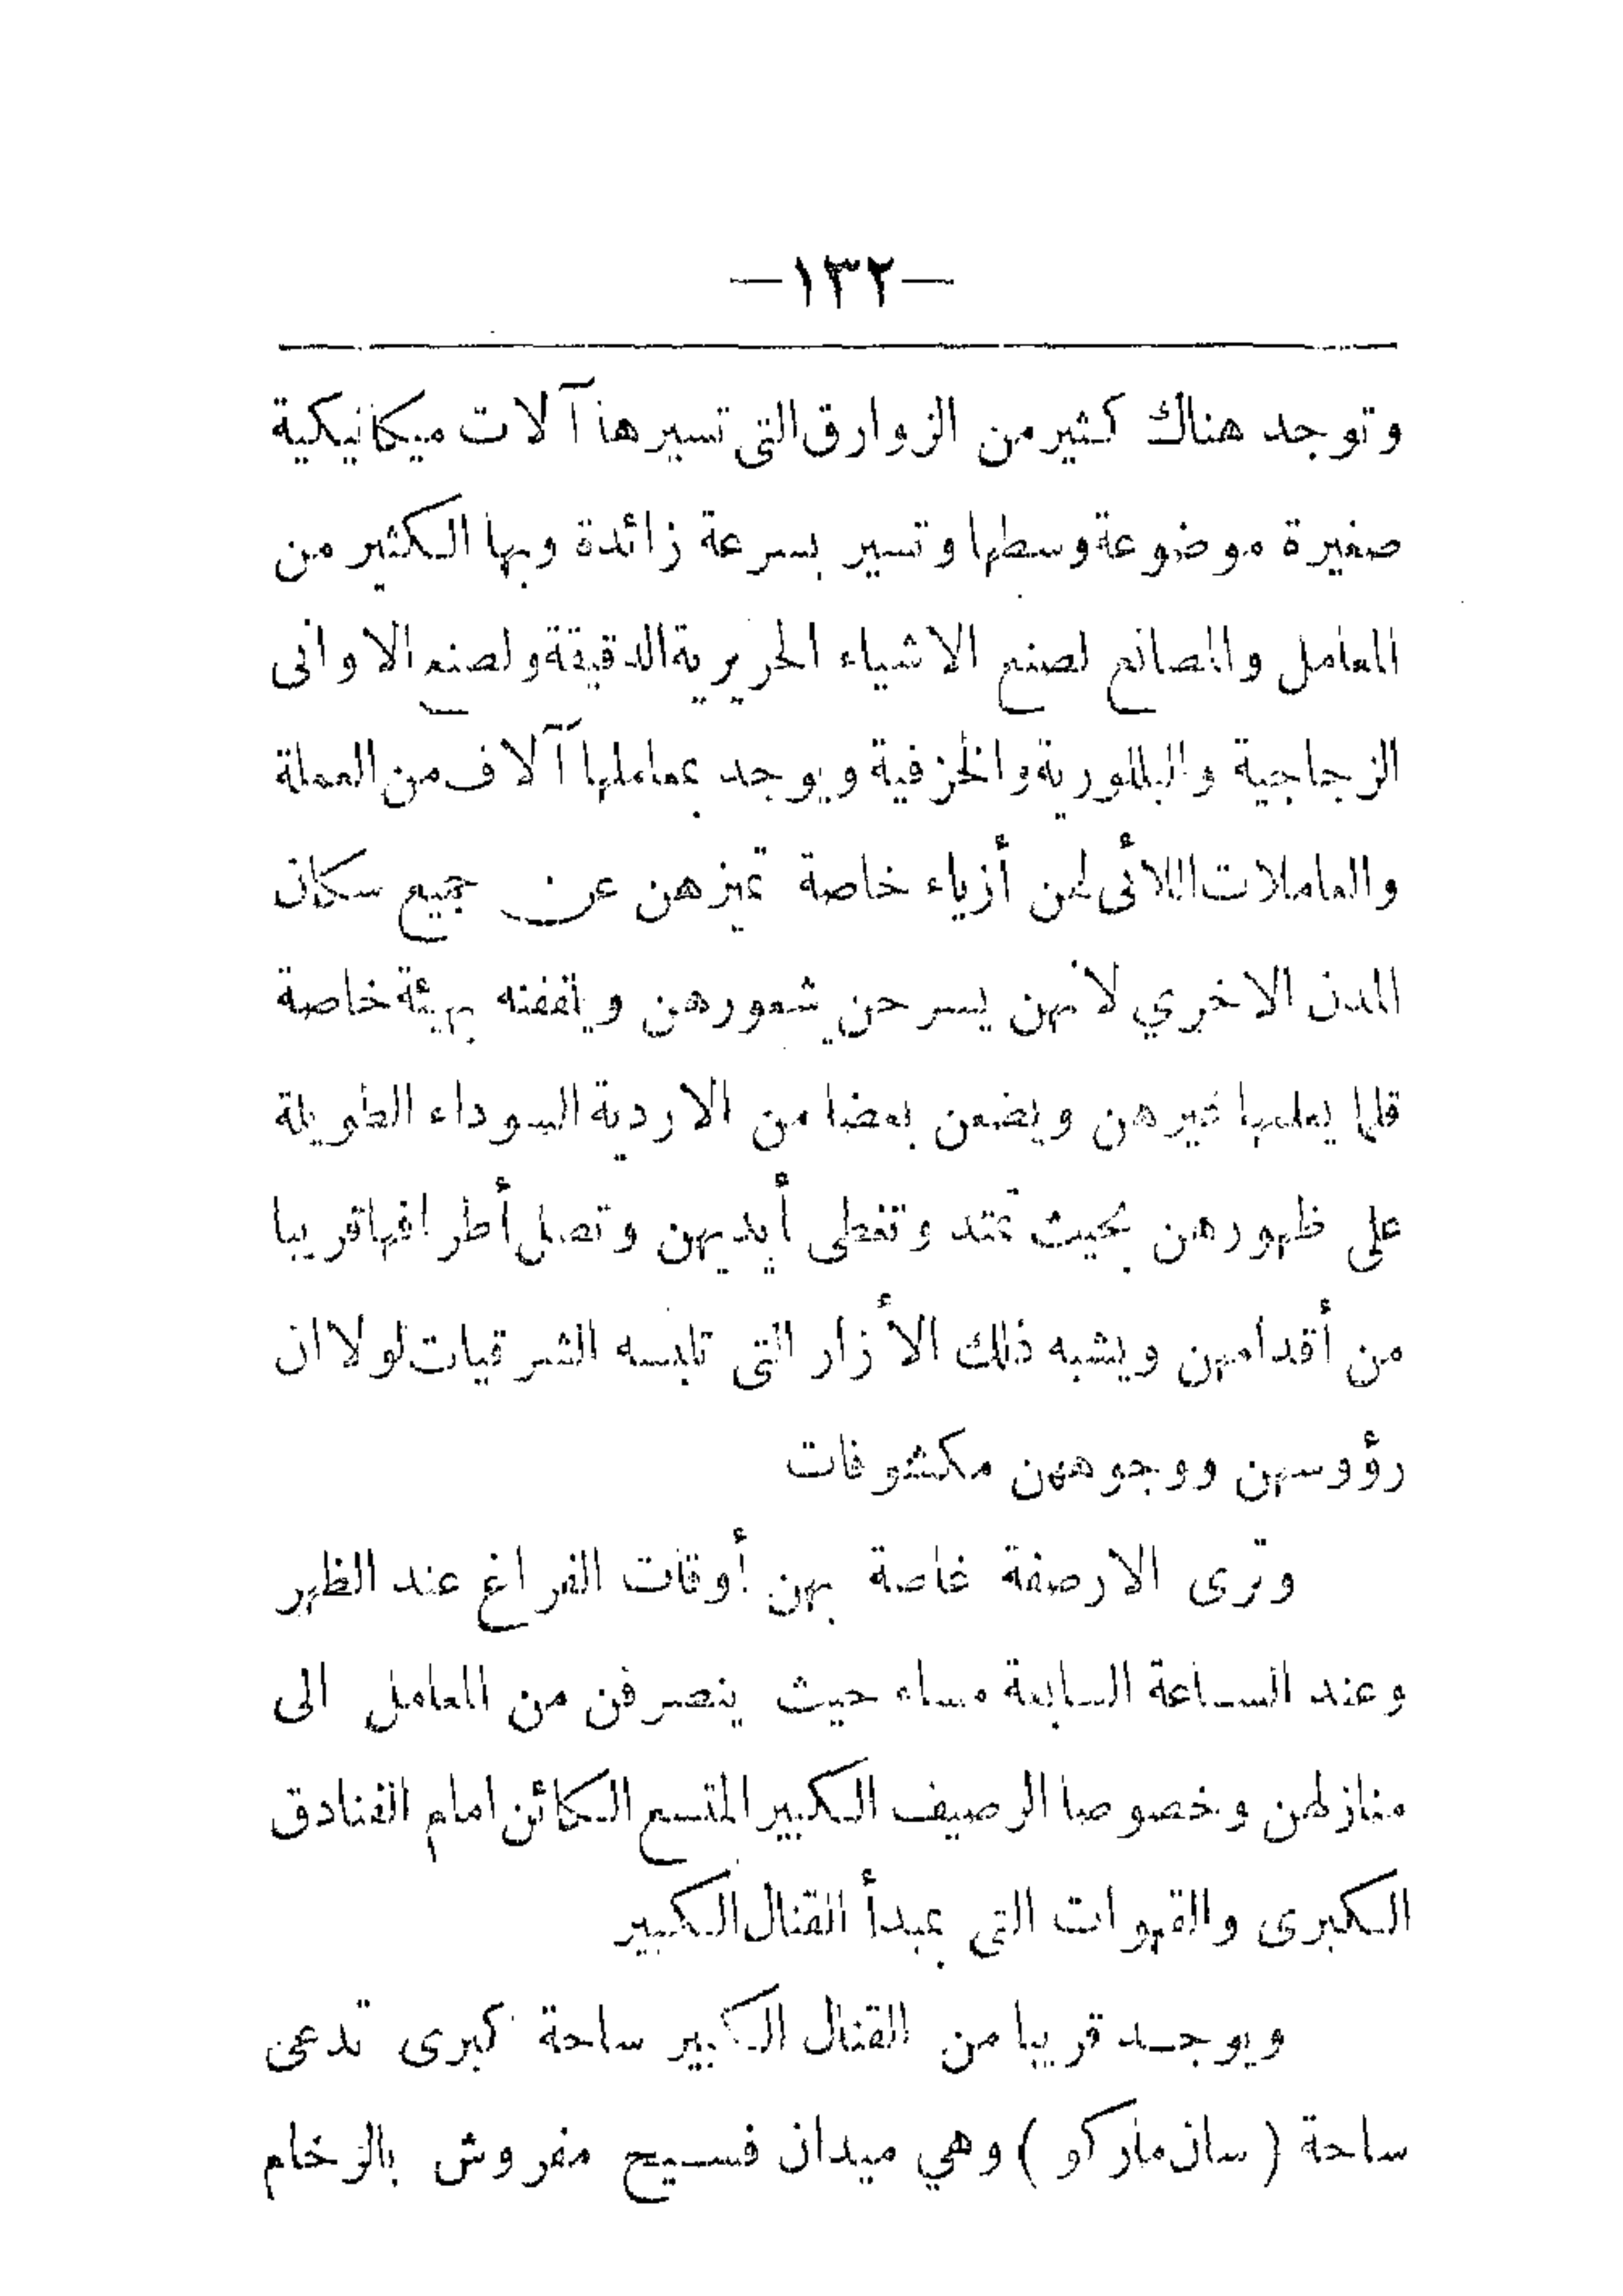 —١٣٢—
وتوجد هناك كثير من الزوارق التى تسيرها آلات ميكانيكية
صغيرة موضوعة وسطها وتسير بسرعة زائدة وبها الكثير من
المعامل والمصانع لصنع الاشياء الحريرية الدقيقة ولصنع الاوانى
الزجاجية والبللورية والخزفية ويوجد بمعاملها آلاف من العملة
والعاملات اللائى لهن أزياء خاصة تميزهن عن جميع سكان
المدن الاخري لانهن يسرحن شعورهن ويقفنه بهيئة خاصة
قلما يعلمها غيرهن ويضعن بعضا من الاردية السوداء الطويلة
على ظهورهن بحيث تمتد وتغطى أيديهن وتصل أطرافها قريبا
من أقدامهن ويشبه ذلك الأزار التى تلبسه الشرقيات لولا ان
رؤوسهن ووجوههن مكشوفات
وترى الارصفة غاصة بهن أوقات الفراغ عند الظهر
وعند الساعة السابعة مساء حيث ينصرفن من المعامل الى
منازلهن وخصوصا الرصيف الكبير المتسع الكائن امام الفنادق
الكبرى والقهوات التى بمبدأ القنال الكبير
ويوجد قريبا من القنال الكبير ساحة كبرى تدعى
ساحة ( سان ماركو ) وهي ميدان فسيح مفروش بالرخام